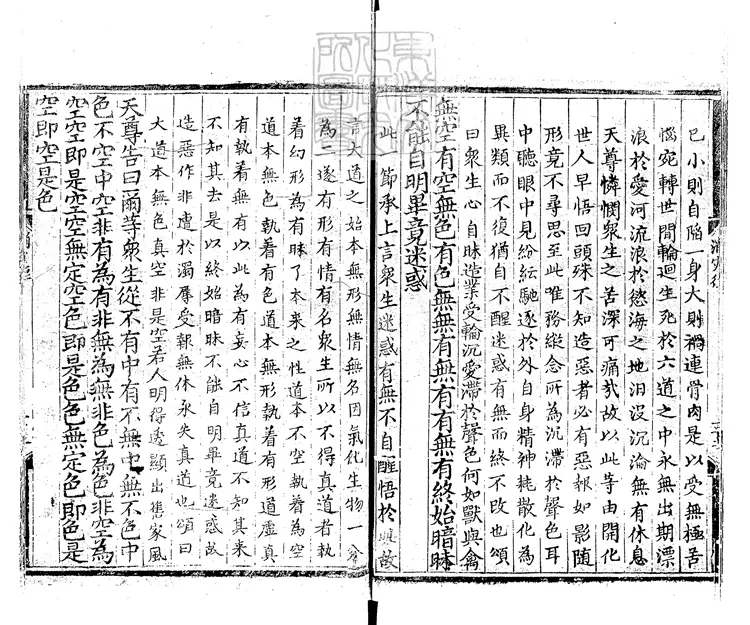 已小則自陷一身大則禍連骨肉是以受無極苦
惱宛轉世間輪迴生死於六道之中永無出期漂
浪於愛河流浪於慾海之地汩沒沉淪無有休息
天尊憐憫衆生之苦深可痛哉故以此等由開化
世人早悟回頭殊不知造惡者必有惡報如影隨
形竟不尋思至此唯務縱念所為沉滯於聲色耳
中聽眼中見紛紜馳逐於外自身精神耗散化為
異類而不復猶自不醒迷惑有無而終不改也頌
曰衆生心自昧造業受輪沉愛滯於聲色何如獸與禽
無空有空無色有色無無有無有有無有終始暗昧
不能自明畢竟迷惑
此一節承上言衆生迷惑有無不自醒悟於是故
言大道之始本無形無情無名因氣化生物一分
為二遂有形有情有名衆生所以不得真道者執
着幻形為有昧了本来之性道本不空執着為空
道本無色執着有色道本無形執着有形道虛真
有執着無有以此為有妄心不信真道不知其来
不知其去是以終始暗昧不能自明畢竟迷惑故
造惡作非遭於濁辱受報無休永失真道也頌曰
大道本無色真空非是空若人明得透顯出舊家風
天尊告曰爾等衆生從不有中有不無中無不色中
色不空中空非有為有非無為無非色為色非空為
空空即是空空無定空色即是色色無定色即色是
空即空是色